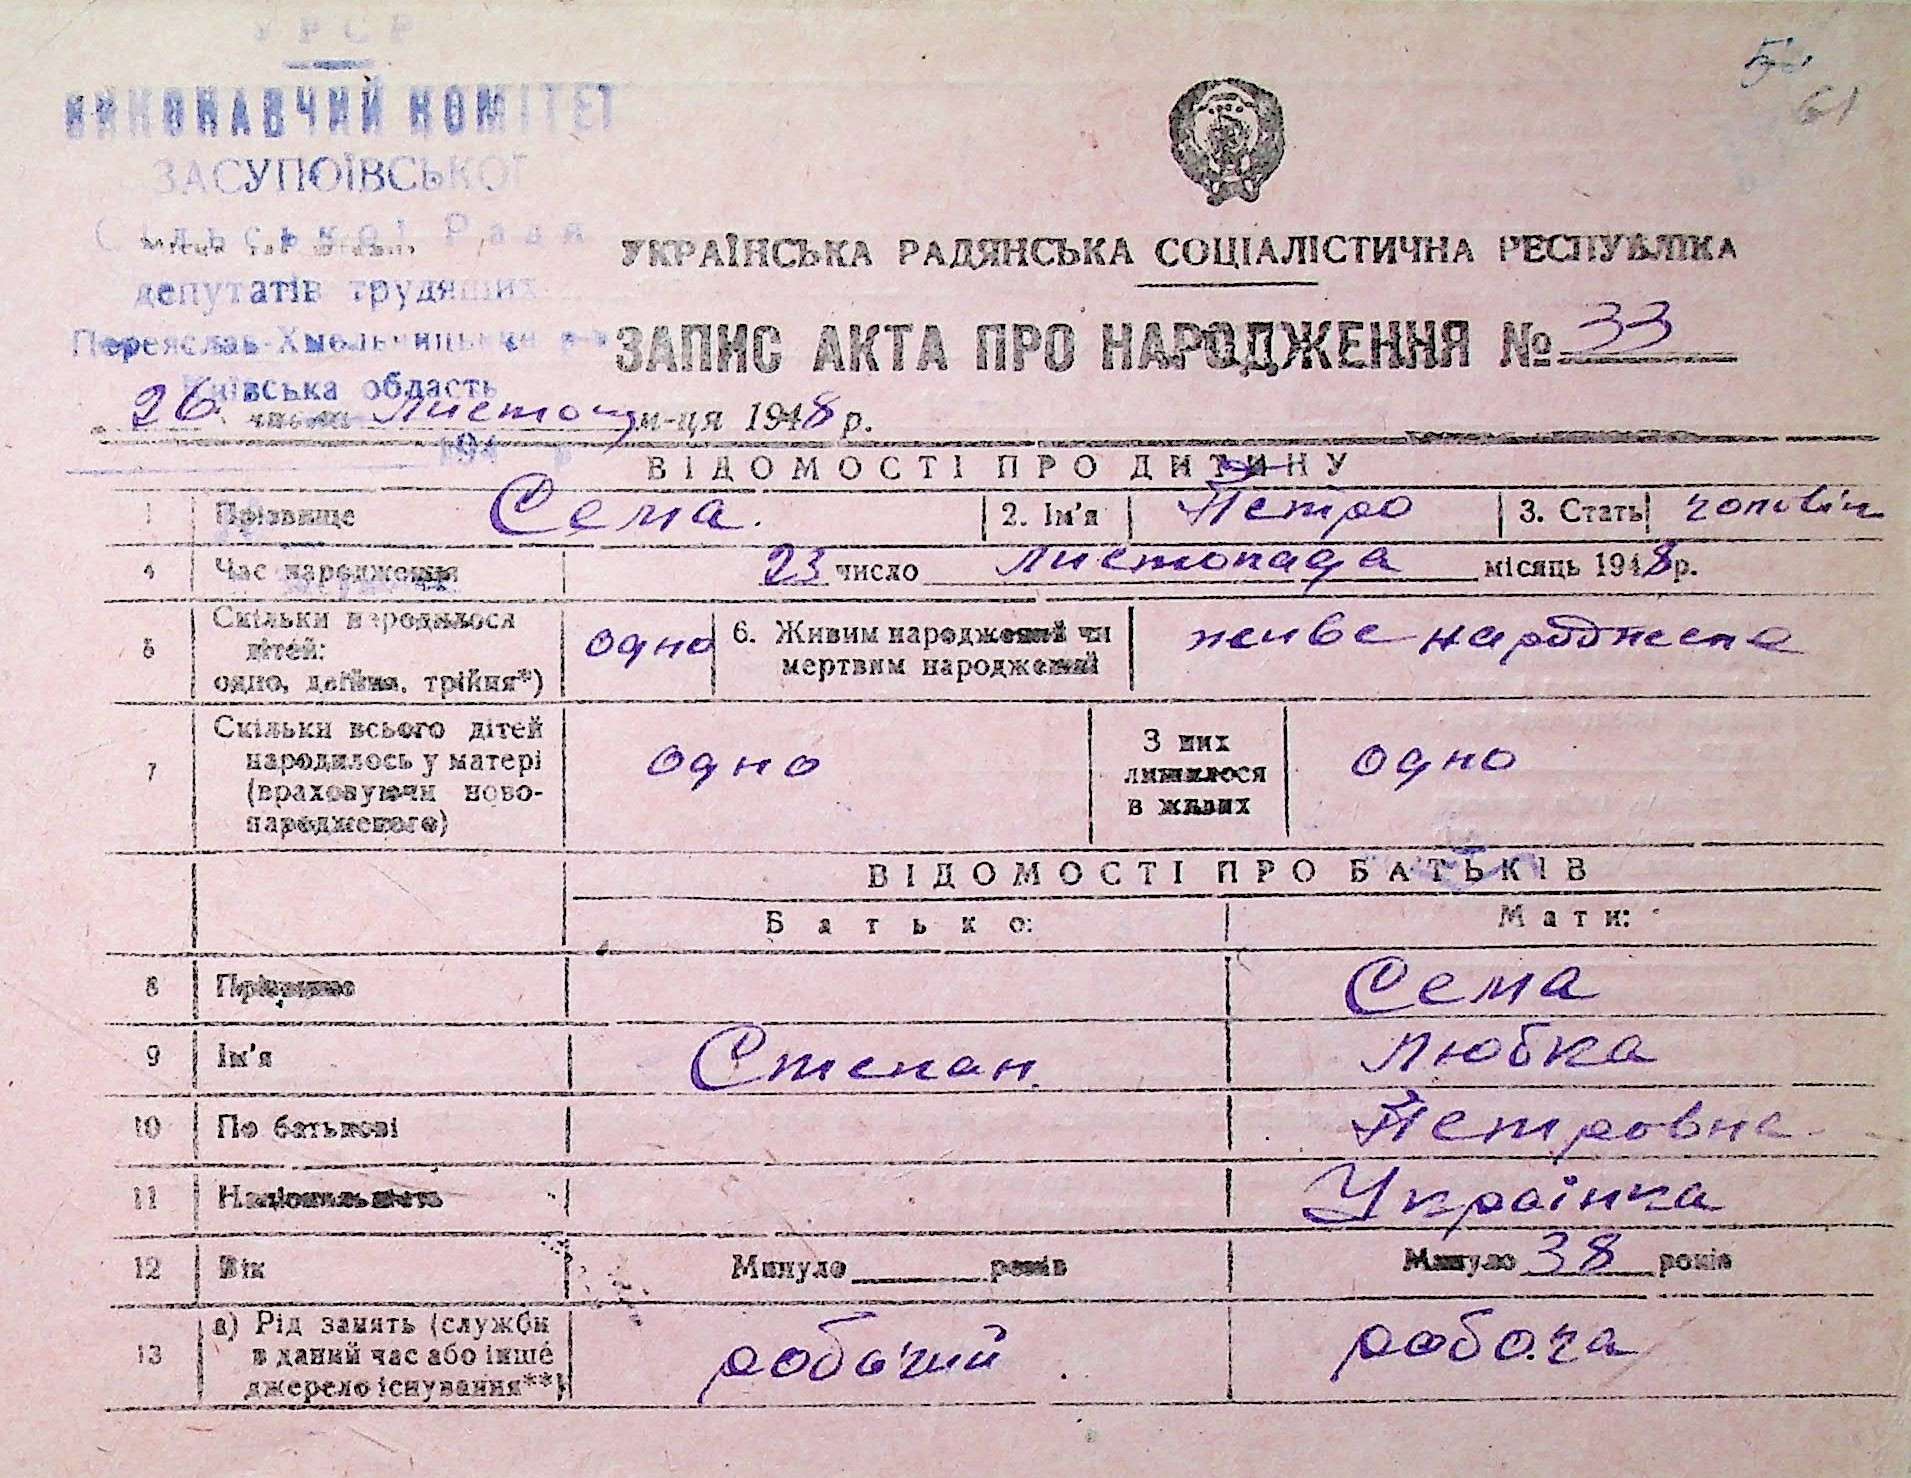 УРСР
ВИКОНАВЧИЙ КОМІТЕТ
ЗАСУПОЇВСЬКОЇ
Сільської Ради
депутатів трудящих
Переяслав-Хмельницький р-н
Київська область
194 р
61
УКРАЇНСЬКА РАДЯНСЬКА СОЦІАЛІСТИЧНА РЕСПУБЛІКА
ЗАПИС АКТА ПРО НАРОДЖЕННЯ № 33
26 листопад м-ця 1948 р.
ВІДОМОСТІ ПРО ДИТИНУ
1 Прізвище Сема. 2. Ім'я Петро 3. Стать чоловіч
4 Час народження 23 число листопада місяць 1948 р.
5 Скільки народилося дітей: одно, двійня, трійня*) одно 6. Живим народжений чи мертвим народжений живе народжене
7 Скільки всього дітей народилось у матері (враховуючи новонародженого) одно З них лишилося в живих одно
ВІДОМОСТІ ПРО БАТЬКІВ
Батько: Мати:
8 Прізвище Сема
9 Ім'я Степан. Любка
10 По батькові Петровна
11 Національність Українка
12 Вік Минуло ______ років Минуло 38 років
13 а) Рід занять (служби в даний час або інше джерело існування**) робочий робоча